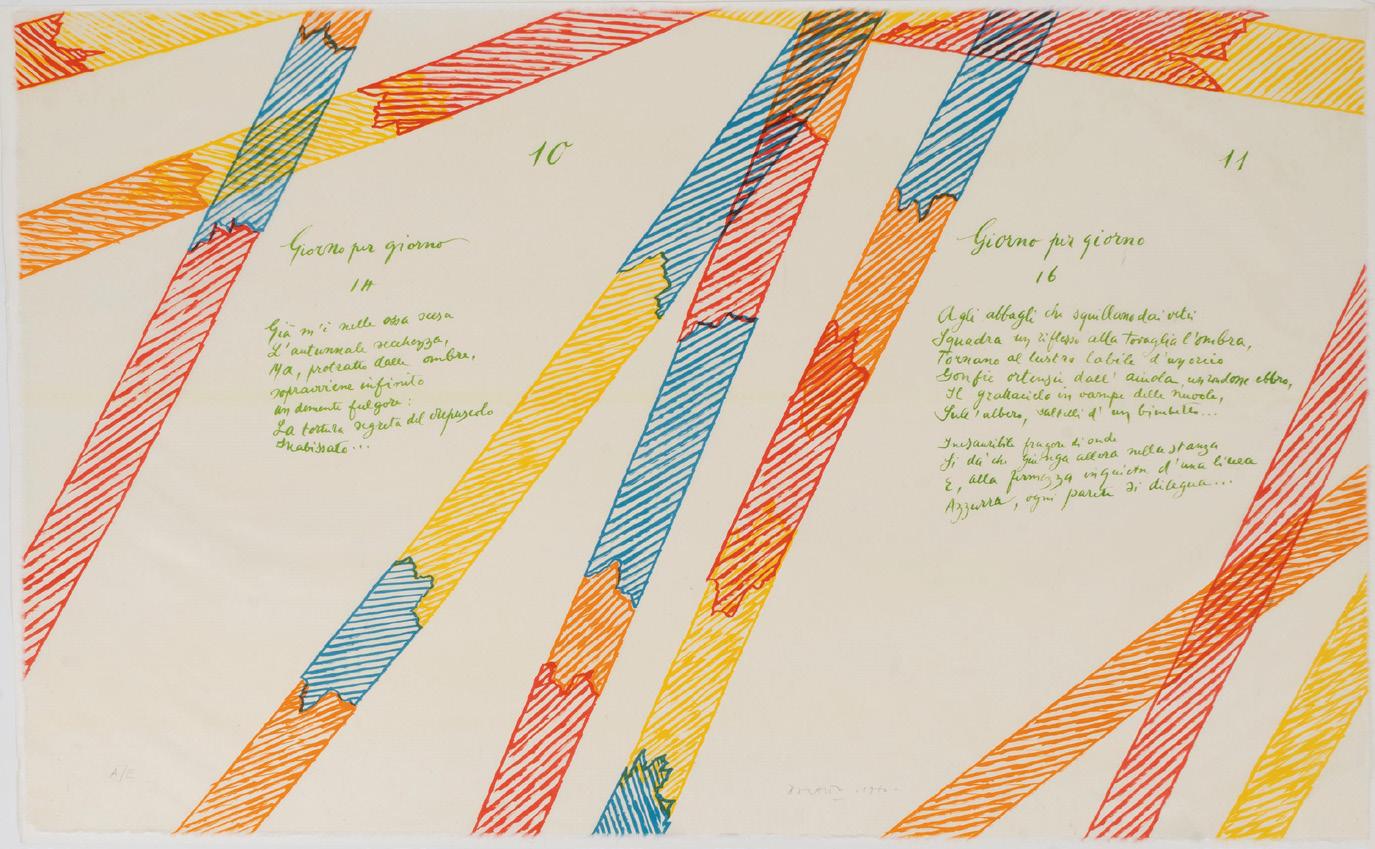 10
Giorno per giorno
14
Già m'è nelle ossa scesa
L'autunnale secchezza,
Ma, protratto dalle ombre,
sopravviene infinito
un demente fulgore:
La tortura segreta del crepuscolo
Inabissato...
11
Giorno per giorno
16
Agli abbagli che squillano dai vetri
Squadra un riflesso alla tovaglia l'ombra,
Tornano al lustro labile d'un orcio
Gonfie ortensie dall'aiuola, un rondone ebbro,
Il grattacielo in vampe delle nuvole,
Sull'albero, saltelli d'un bimbetto...
Inesauribile fragore di onde
Si dà che giunga allora nella stanza
E, alla fermezza inquieta d'una linea
Azzurra, ogni parete si dilegua...
A/E